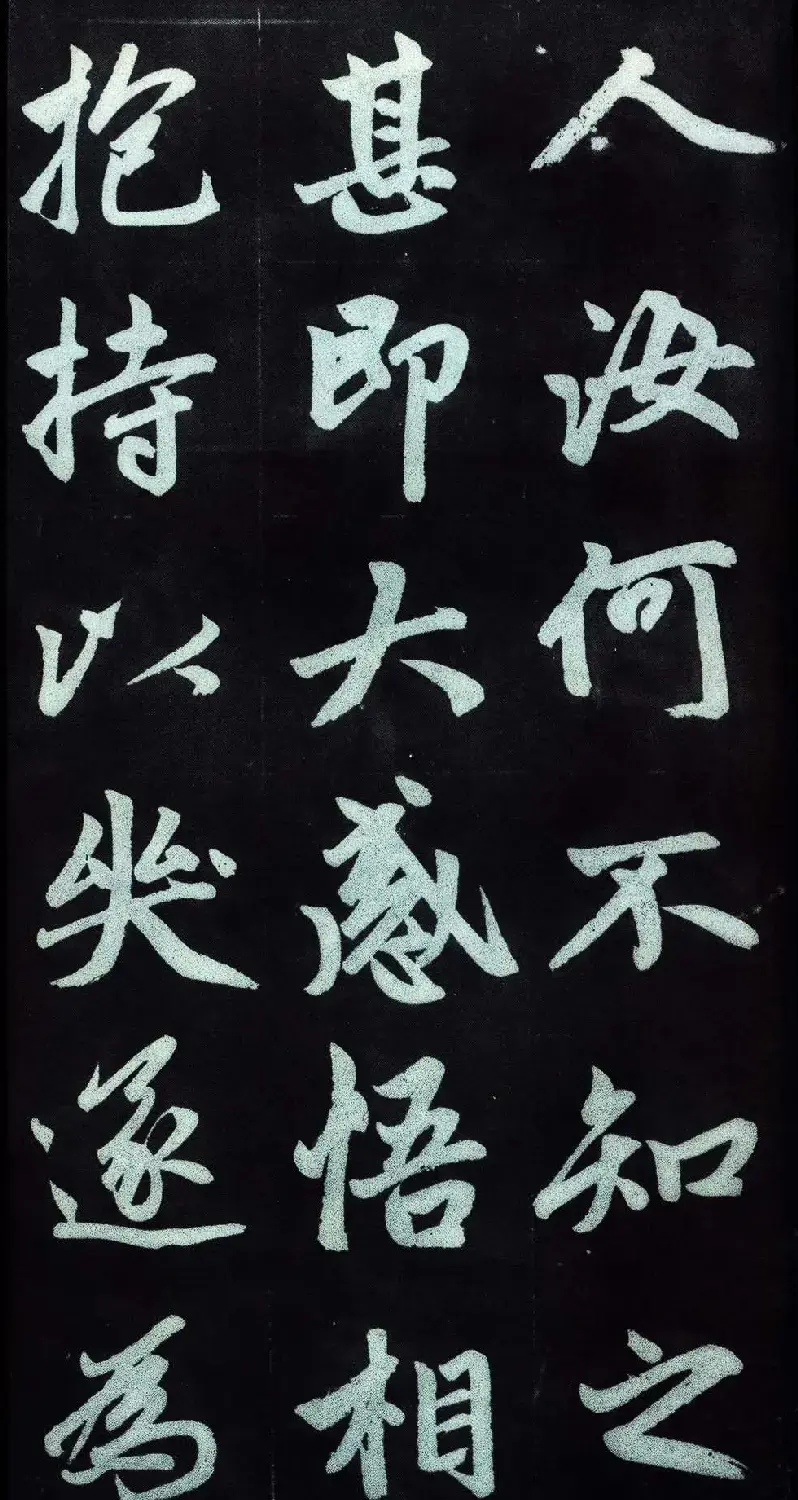 人汝何不知之
甚即大感悟相
抱持以哭遂為